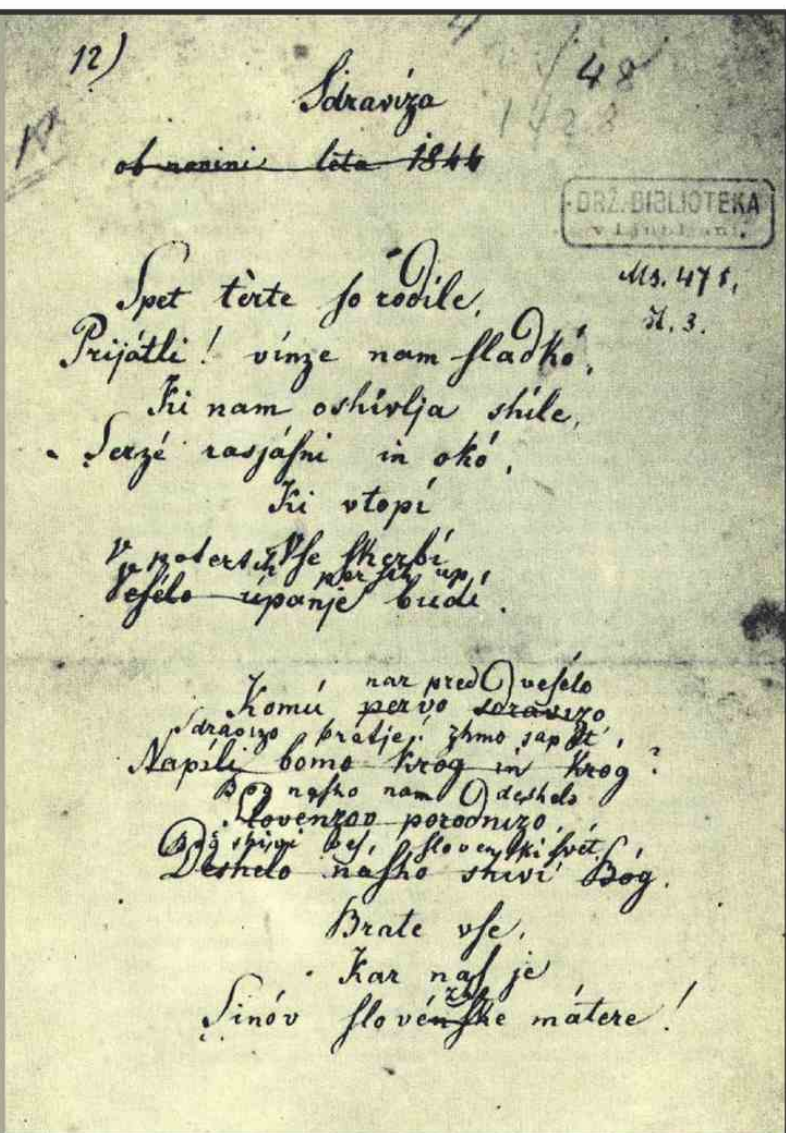 12)
48
1428
Sdravíza
ob novini léta 1844
DRŽ. BIBLIOTEKA
v Ljubljani.
Ms. 471,
Spet tèrte ſo rodíle,
št. 3.
Prijátli! vínze nam ſladkó,
Ki nam oshívlja shíle,
Serzé rasjáſni in okó,
Ki vtopí
Vſe ſkerbí
V potertih perſih up
Veſélo úpanje budí.
nar pred veſélo
Komú pervo sdravizo
Sdravizo bratje! zhmo sapét',
Napíli bomo krog in krog?
Bog naſho nam deshelo
Slovenzov porodnizo,
Bog shivi veſ, ſlovenſki ſvét,
Deshelo naſho shiví Bóg.
Brate vſe,
Kar naſ je
Sinóv ſlovénſke mátere!